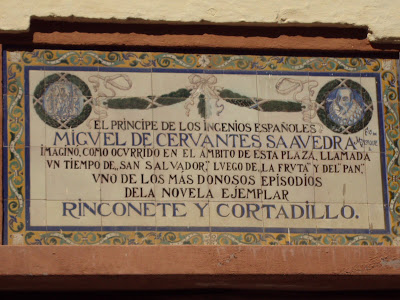 EL PRINCIPE DE LOS INGENIOS ESPAÑOLES
MIGUEL DE CERVANTES SAAVEDRA
IMAGINO, COMO OCVRRIDO EN EL AMBITO DE ESTA PLAZA, LLAMADA
VN TIEMPO DE „SAN SALVADOR„ LVEGO DE „LA FRVTA„ Y DEL „PAN„
VNO DE LOS MAS DONOSOS EPISODIOS
DE LA NOVELA EJEMPLAR
RINCONETE Y CORTADILLO.